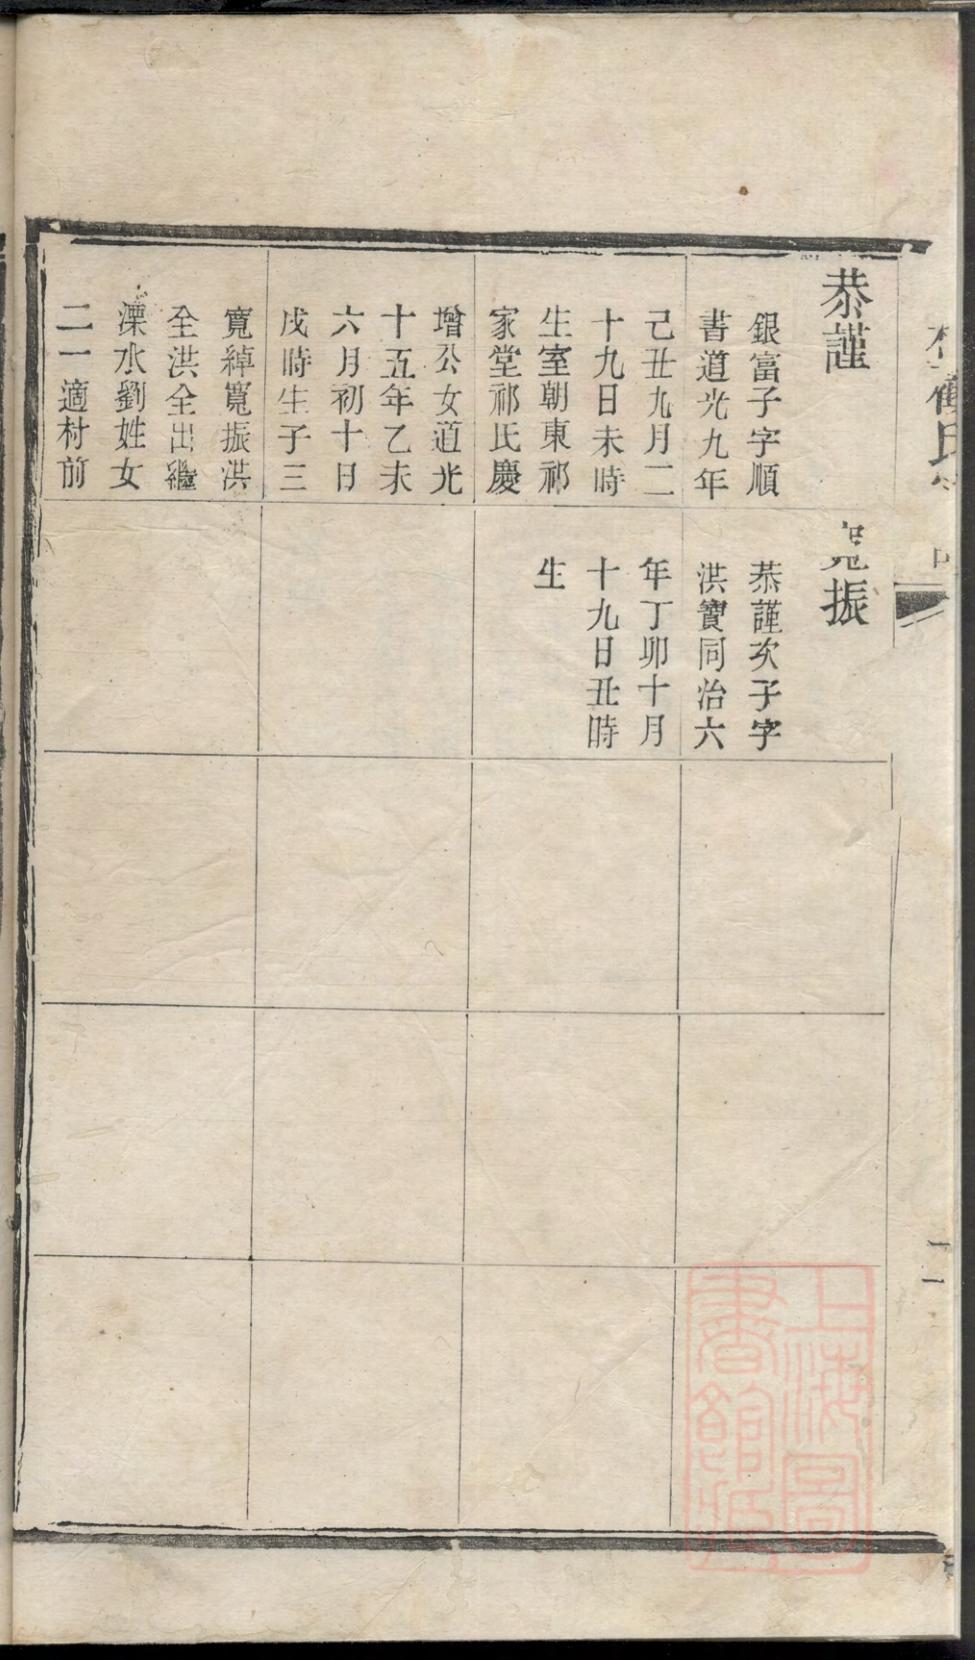 恭謹
銀富子字順
書道光九年
己丑九月二
十九日未時
生室朝東祁
家堂祁氏慶
增公女道光
十五年乙未
六月初十日
戌時生子三
寬綽寬振洪
全洪全出繼
溧水劉姓女
二一適村前
寬振
恭謹次子字
洪寶同治六
年丁卯十月
十九日丑時
生
上海圖
書館藏